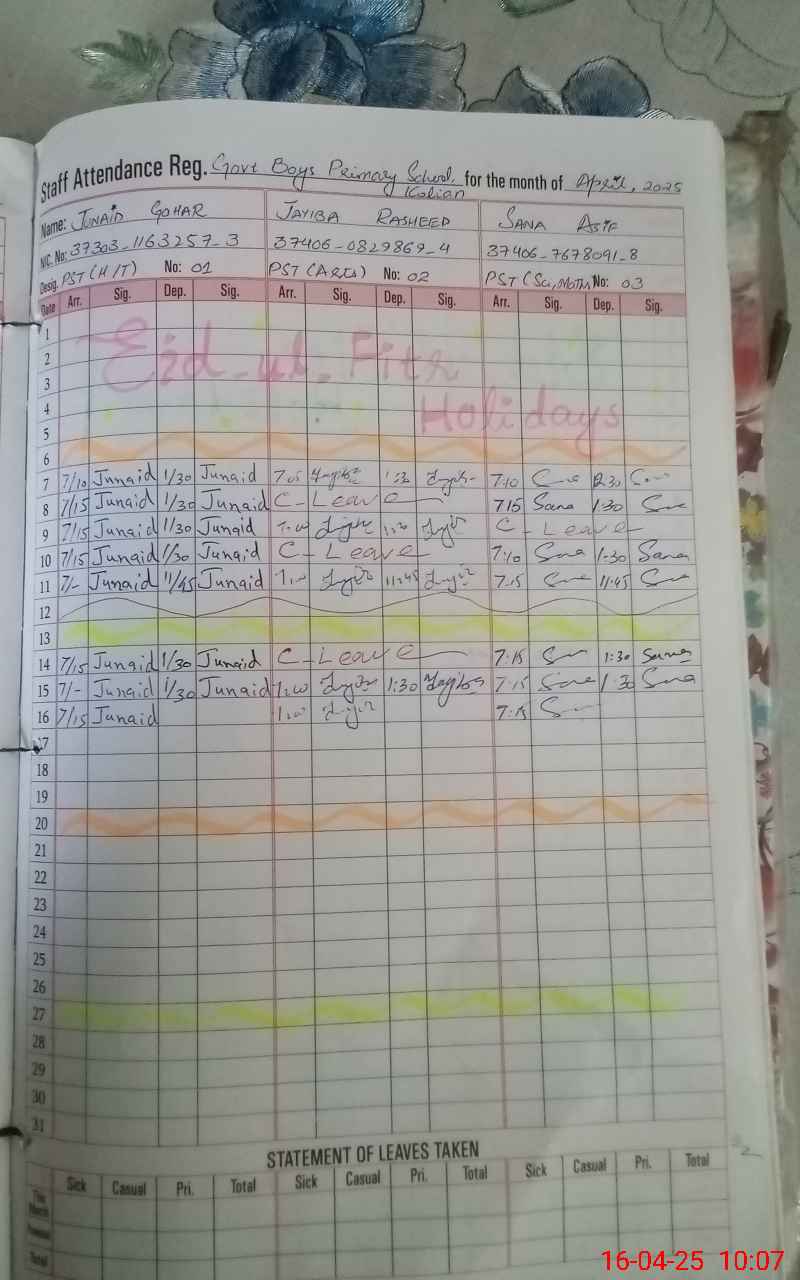 Staff Attendance Reg. Govt Boys Primary School Kolian for the month of April, 2025
Name: JUNAID GOHAR JAYIBA RASHEED SANA ASIF
NIC. No: 37303-1163257-3 37406-0829869-4 37406-7678091-8
Desig. PST (H/T) No: 01 PST (ARTS) No: 02 PST (Sci, Maths) No: 03
Date Arr. Sig. Dep. Sig. Arr. Sig. Dep. Sig. Arr. Sig. Dep. Sig.
1
2 Eid-ul-Fitr
3
4 Holidays
5
6
7 7/10 Junaid 1/30 Junaid 7:05 1:30 7:10
8 7/15 Junaid 1/30 Junaid C-Leave 7:15 Sana 1:30
9 7/15 Junaid 1/30 Junaid C-Leave
10 7/15 Junaid 1/30 Junaid C-Leave 7:10 Sana 1:30 Sana
11 7/- Junaid 11/45 Junaid 11:45 7:15 11:45
12
13
14 7/15 Junaid 1/30 Junaid C-Leave 7:15 1:30 Sana
15 7/- Junaid 1/30 Junaid 1:30 7:15 Sana 1:30 Sana
16 7/15 Junaid 7:15
17
18
19
20
21
22
23
24
25
26
27
28
29
30
31
STATEMENT OF LEAVES TAKEN
Sick Casual Pri. Total Sick Casual Pri. Total Sick Casual Pri. Total
This Month
Total
16-04-25 10:07